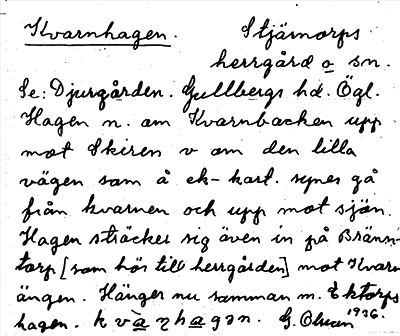 Kvarnhagen. Stjärnorps
herrgård o sn.
Se: Djurgården. Gullbergs hd. Ögl.
Hagen n. om Kvarnbacken upp
mot Skiren v om den lilla
vägen som å ek-kart. synes gå
från kvarnen och upp mot sjön.
Hagen sträcker sig även in på Bränn-
torp [som hör till herrgården] mot Kvarn
ängen. Hänger nu samman m. Ektorps
hagen. G. Olson 1926.